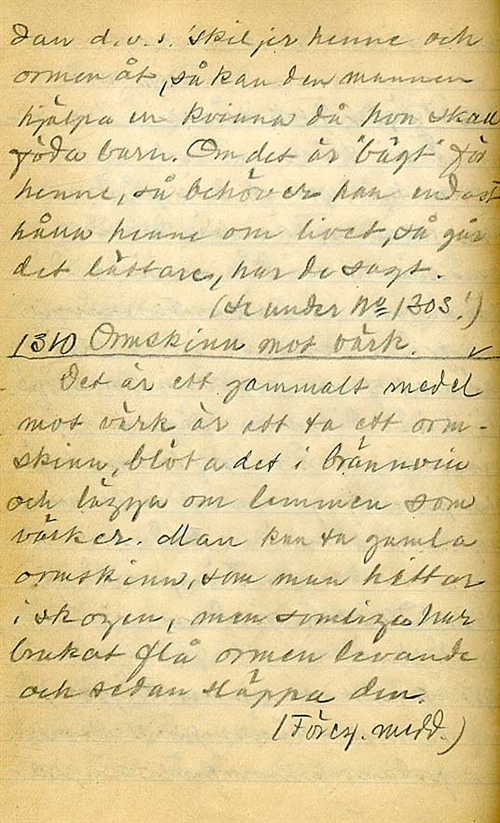 dan d.v.s. skiljer henne och
ormen åt, så kan den mannen
hjälpa en kvinna då hon skall
föda barn. Om det är "bågt" för
henne, så behöver han endast
håna henne om livet, så går
det lättare, har de sagt.
(Se under No 1303!)
1310 Ormskinn mot värk.
Det är ett gammalt medel
mot värk är att ta ett orm-
skinn, blöta det i brännvin
och lägga om lemmen som
värker. Man kan ta gamla
ormskinn, som man hittar
i skogen, men somliga har
brukat flå ormen levande
och sedan släppa den.
(Föreg. medd.)